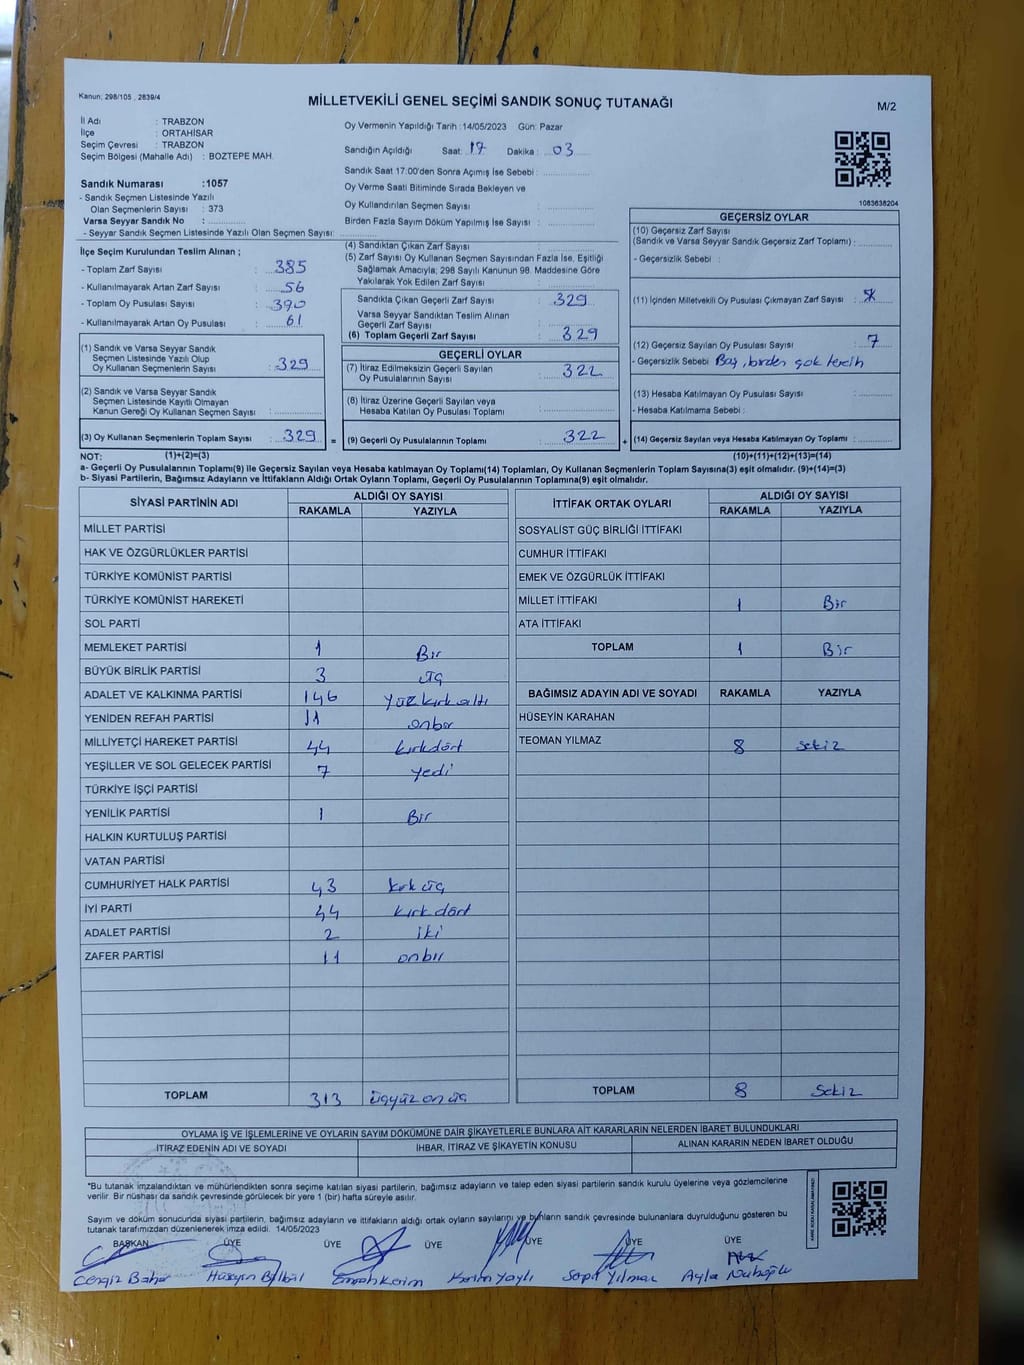 Kanun; 298/105 , 2839/4
MİLLETVEKİLİ GENEL SEÇİMİ SANDIK SONUÇ TUTANAĞI
M/2
İl Adı : TRABZON
İlçe : ORTAHİSAR
Seçim Çevresi : TRABZON
Seçim Bölgesi (Mahalle Adı) : BOZTEPE MAH.
Oy Vermenin Yapıldığı Tarih :14/05/2023 Gün: Pazar
Sandığın Açıldığı Saat: 17 Dakika : 03
Sandık Saat 17:00'den Sonra Açımış İse Sebebi :
Oy Verme Saati Bitiminde Sırada Bekleyen ve
Oy Kullandırılan Seçmen Sayısı :
Birden Fazla Sayım Döküm Yapılmış İse Sayısı :
1083638204
Sandık Numarası :1057
- Sandık Seçmen Listesinde Yazılı
Olan Seçmenlerin Sayısı : 373
Varsa Seyyar Sandık No :
- Seyyar Sandık Seçmen Listesinde Yazılı Olan Seçmen Sayısı:
İlçe Seçim Kurulundan Teslim Alınan ;
- Toplam Zarf Sayısı : 385
- Kullanılmayarak Artan Zarf Sayısı : 56
- Toplam Oy Pusulası Sayısı : 390
- Kullanılmayarak Artan Oy Pusulası : 61
(1) Sandık ve Varsa Seyyar Sandık
Seçmen Listesinde Yazılı Olup
Oy Kullanan Seçmenlerin Sayısı : 329
(2) Sandık ve Varsa Seyyar Sandık
Seçmen Listesinde Kayıtlı Olmayan
Kanun Gereği Oy Kullanan Seçmen Sayısı :
(3) Oy Kullanan Seçmenlerin Toplam Sayısı : 329
(4) Sandıktan Çıkan Zarf Sayısı :
(5) Zarf Sayısı Oy Kullanan Seçmen Sayısından Fazla İse, Eşitliği
Sağlamak Amacıyla; 298 Sayılı Kanunun 98. Maddesine Göre
Yakılarak Yok Edilen Zarf Sayısı :
Sandıkta Çıkan Geçerli Zarf Sayısı : 329
Varsa Seyyar Sandıktan Teslim Alınan
Geçerli Zarf Sayısı :
(6) Toplam Geçerli Zarf Sayısı : 329
GEÇERLİ OYLAR
(7) İtiraz Edilmeksizin Geçerli Sayılan
Oy Pusulalarının Sayısı : 322
(8) İtiraz Üzerine Geçerli Sayılan veya
Hesaba Katılan Oy Pusulası Toplamı :
= (9) Geçerli Oy Pusulalarının Toplamı : 322 +
GEÇERSİZ OYLAR
(10) Geçersiz Zarf Sayısı
(Sandık ve Varsa Seyyar Sandık Geçersiz Zarf Toplamı) :
- Geçersizlik Sebebi :
(11) İçinden Milletvekili Oy Pusulası Çıkmayan Zarf Sayısı :
(12) Geçersiz Sayılan Oy Pusulası Sayısı : 7
- Geçersizlik Sebebi : Boş, birden çok tercih
(13) Hesaba Katılmayan Oy Pusulası Sayısı :
- Hesaba Katılmama Sebebi :
(14) Geçersiz Sayılan veya Hesaba Katılmayan Oy Toplamı :
NOT: (1)+(2)=(3) (10)+(11)+(12)+(13)=(14)
a- Geçerli Oy Pusulalarının Toplamı(9) ile Geçersiz Sayılan veya Hesaba katılmayan Oy Toplamı(14) Toplamları, Oy Kullanan Seçmenlerin Toplam Sayısına(3) eşit olmalıdır. (9)+(14)=(3)
b- Siyasi Partilerin, Bağımsız Adayların ve İttifakların Aldığı Ortak Oyların Toplamı, Geçerli Oy Pusulalarının Toplamına(9) eşit olmalıdır.
SİYASİ PARTİNİN ADI ALDIĞI OY SAYISI
RAKAMLA YAZIYLA
MİLLET PARTİSİ
HAK VE ÖZGÜRLÜKLER PARTİSİ
TÜRKİYE KOMÜNİST PARTİSİ
TÜRKİYE KOMÜNİST HAREKETİ
SOL PARTİ
MEMLEKET PARTİSİ 1 Bir
BÜYÜK BİRLİK PARTİSİ 3 üç
ADALET VE KALKINMA PARTİSİ 146 yüzkırkaltı
YENİDEN REFAH PARTİSİ 11 onbir
MİLLİYETÇİ HAREKET PARTİSİ 44 kırkdört
YEŞİLLER VE SOL GELECEK PARTİSİ 7 yedi
TÜRKİYE İŞÇİ PARTİSİ
YENİLİK PARTİSİ 1 Bir
HALKIN KURTULUŞ PARTİSİ
VATAN PARTİSİ
CUMHURİYET HALK PARTİSİ 43 kırküç
İYİ PARTİ 44 kırkdört
ADALET PARTİSİ 2 iki
ZAFER PARTİSİ 11 onbir
TOPLAM 313 üçyüzonüç
İTTİFAK ORTAK OYLARI ALDIĞI OY SAYISI
RAKAMLA YAZIYLA
SOSYALİST GÜÇ BİRLİĞİ İTTİFAKI
CUMHUR İTTİFAKI
EMEK VE ÖZGÜRLÜK İTTİFAKI
MİLLET İTTİFAKI 1 Bir
ATA İTTİFAKI
TOPLAM 1 Bir
BAĞIMSIZ ADAYIN ADI VE SOYADI RAKAMLA YAZIYLA
HÜSEYİN KARAHAN
TEOMAN YILMAZ 8 sekiz
TOPLAM 8 Sekiz
OYLAMA İŞ VE İŞLEMLERİNE VE OYLARIN SAYIM DÖKÜMÜNE DAİR ŞİKAYETLERLE BUNLARA AİT KARARLARIN NELERDEN İBARET BULUNDUKLARI
İTİRAZ EDENİN ADI VE SOYADI İHBAR, İTİRAZ VE ŞİKAYETİN KONUSU ALINAN KARARIN NEDEN İBARET OLDUĞU
"Bu tutanak imzalandıktan ve mühürlendikten sonra seçime katılan siyasi partilerin, bağımsız adayların ve talep eden siyasi partilerin sandık kurulu üyelerine veya gözlemcilerine
verilir. Bir nüshası da sandık çevresinde görülecek bir yere 1 (bir) hafta süreyle asılır.
Sayım ve döküm sonucunda siyasi partilerin, bağımsız adayların ve ittifakların aldığı ortak oyların sayılarını ve bunların sandık çevresinde bulunanlara duyrulduğunu gösteren bu
tutanak tarafımızdan düzenlenerek imza edildi. 14/05/2023
BAŞKAN ÜYE ÜYE ÜYE ÜYE ÜYE ÜYE
Cengiz Hüseyin Bülbül Kerim Yaylı Yılmaz Ayla